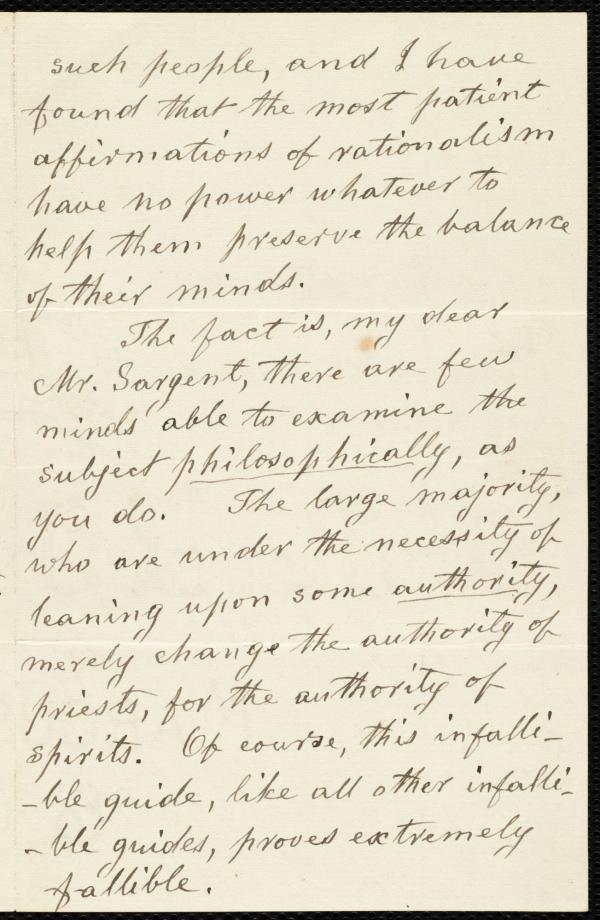 such people, and I have
found that the most patient
affirmations of rationalism
have no power whatever to
help them preserve the balance
of their minds.
The fact is, my dear
Mr. Sargent, there are few
minds able to examine the
subject philosophically, as
you do. The large majority,
who are under the necessity of
leaning upon some authority,
merely change the authority of
priests, for the authority of
spirits. Of course, this infalli-
-ble guide, like all other infalli-
-ble guides, proves extremely
fallible.